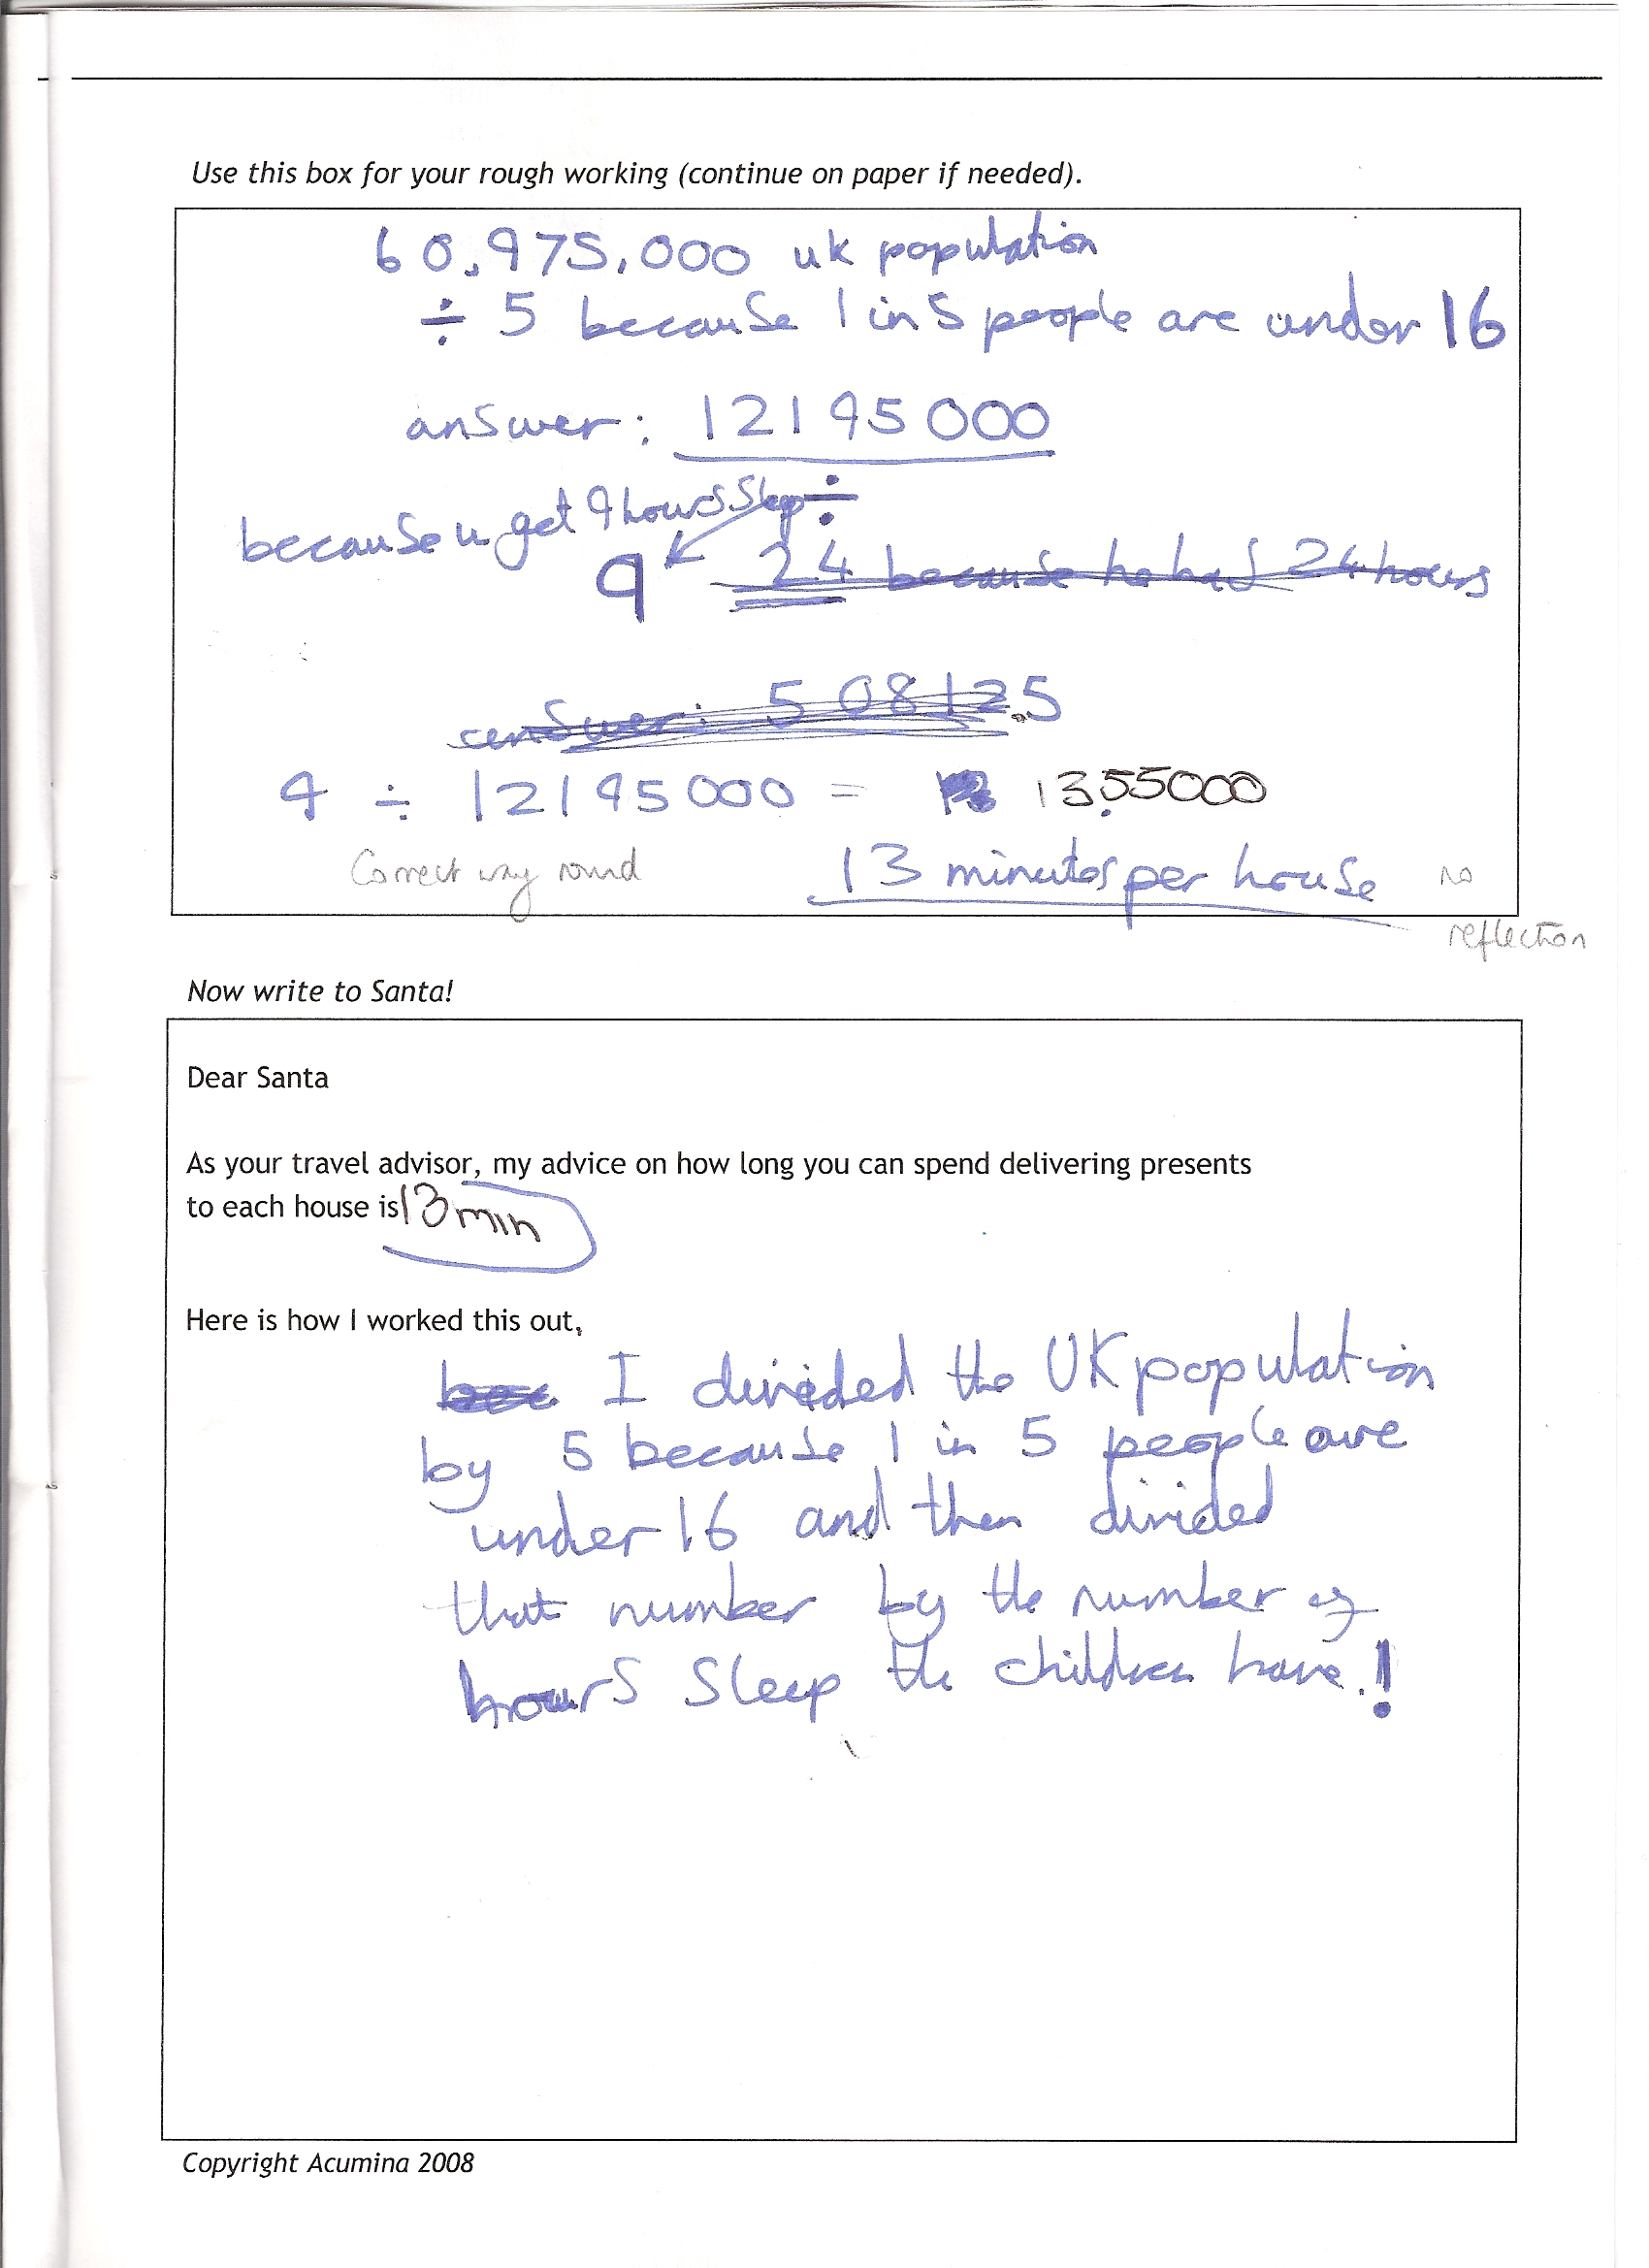 Use this box for your rough working (continue on paper if needed).
60,975,000 uk population
÷ 5 because 1 in 5 people are under 16
answer: 12195000
because u get 9 hours sleep ÷
9 24 because he had 24 hours
answer: 508125.5
9 ÷ 12195000 = 13.55000
Correct way round 13 minutes per house no
reflection
Now write to Santa!
Dear Santa
As your travel advisor, my advice on how long you can spend delivering presents
to each house is 13 min
Here is how I worked this out,
I divided the UK population
by 5 because 1 in 5 people are
under 16 and then divided
that number by the number of
hours sleep the children have.!
Copyright Acumina 2008